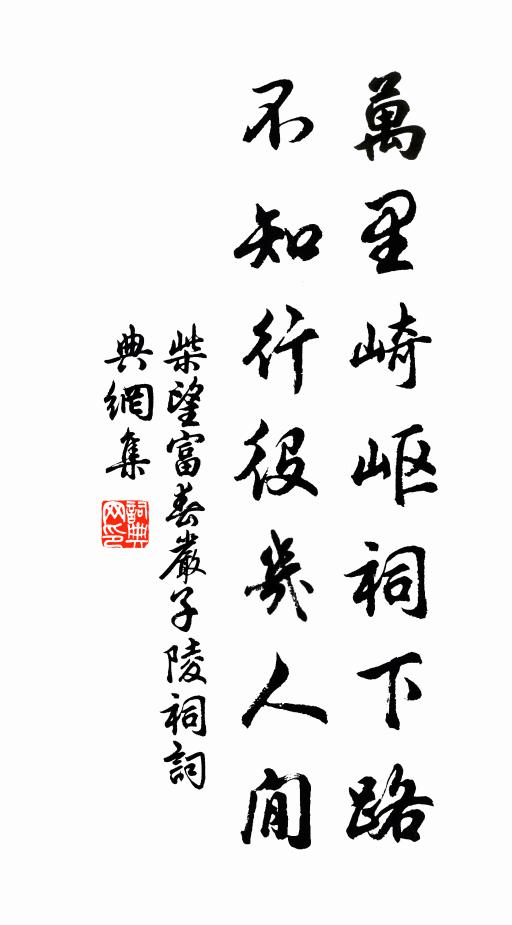 萬里崎岖祠下路
不知行役幾人間
柴望富春嚴子陵祠詞
典網集
詞典
网印